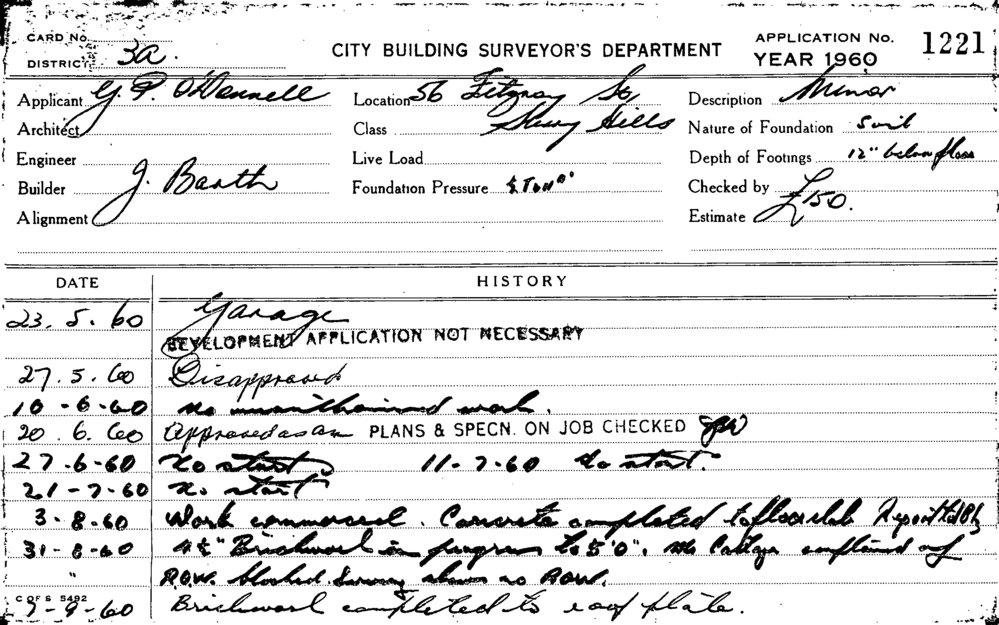 CARD No.
DISTRICT 3a.
CITY BUILDING SURVEYOR'S DEPARTMENT
APPLICATION No. 1221
YEAR 1960
Applicant G. P. O'Donnell
Location 56 Fitzroy St
Surry Hills
Description Minor
Architect
Class
Nature of Foundation Soil
Engineer
Live Load
Depth of Footings 12" below floor
Builder J. Barth
Foundation Pressure
Checked by
Alignment
Estimate £150.
DATE HISTORY
23. 5. 60 Garage
DEVELOPMENT APPLICATION NOT NECESSARY
27. 5. 60 Disapproved
10-6-60 No unauthorised work.
20. 6. 60 Approved as am PLANS & SPECN. ON JOB CHECKED
27-6-60 No start 11-7-60 No start.
21-7-60 No start
3-8-60 Work commenced. Concrete completed to floor slab
31-8-60 4½" Brickwork in progress to 5'0". complained of
" R.O.W. blocked Survey shows no R.O.W.
C OF S 5492
7-9-60 Brickwork completed to roof plate.